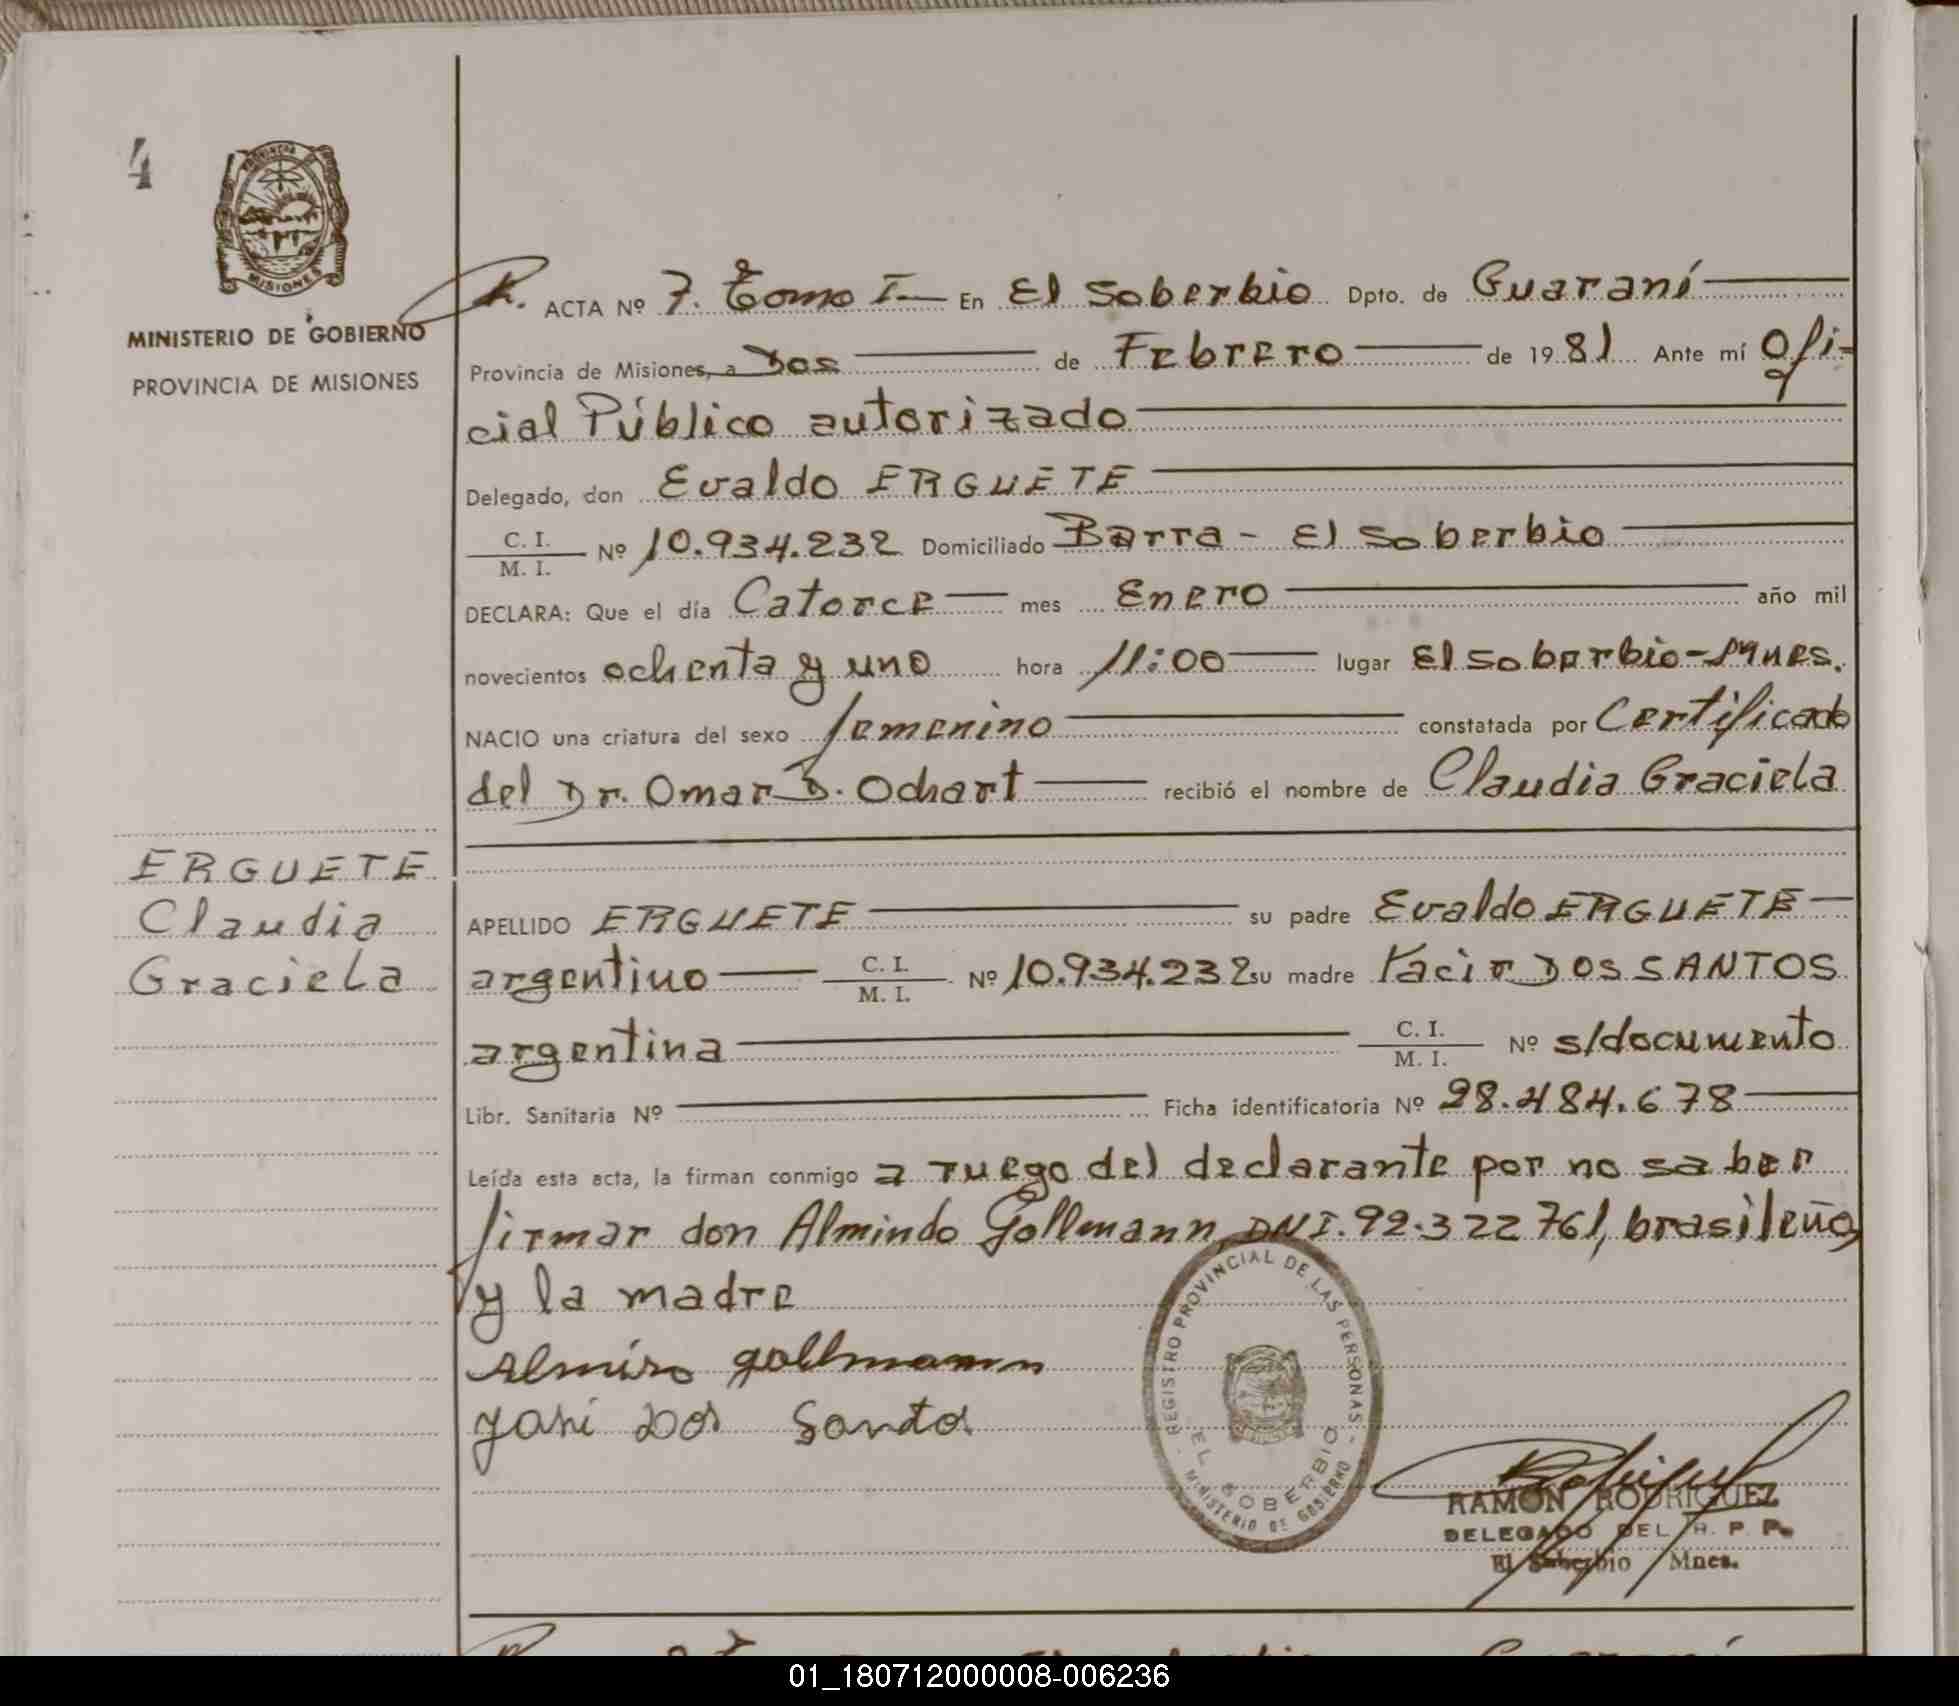 4
PROVINCIA DE
MISIONES
MINISTERIO DE GOBIERNO
PROVINCIA DE MISIONES
R. ACTA Nº 7. Tomo I En El Soberbio Dpto. de Guaraní
Provincia de Misiones, a Dos de Febrero de 1981 Ante mí Ofi-
cial Público autorizado
Delegado, don Evaldo ERGUETE
C. I.
M. I. Nº 10.934.232 Domiciliado Barra - El Soberbio
DECLARA: Que el día Catorce mes Enero año mil
novecientos ochenta y uno hora 11:00 lugar El Soberbio-Mnes.
NACIO una criatura del sexo femenino constatada por Certificado
del Dr. Omar D. Ochart recibió el nombre de Claudia Graciela
ERGUETE
Claudia
Graciela
APELLIDO ERGUETE su padre Evaldo ERGUETE
argentino C. I.
M. I. Nº 10.934.232 su madre Yacir DOS SANTOS
argentina C. I.
M. I. Nº s/documento
Libr. Sanitaria Nº Ficha identificatoria Nº 28.484.678
Leída esta acta, la firman conmigo a ruego del declarante por no saber
firmar don Almindo Gollmann, DNI. 92.322761, brasileño,
y la madre
Almiro gollmann
Dos Santos
REGISTRO PROVINCIAL DE LAS PERSONAS
EL SOBERBIO
MINISTERIO DE GOBIERNO
RAMON RODRIGUEZ
DELEGADO DEL R. P. P.
El Soberbio Mnes.
01_180712000008-006236